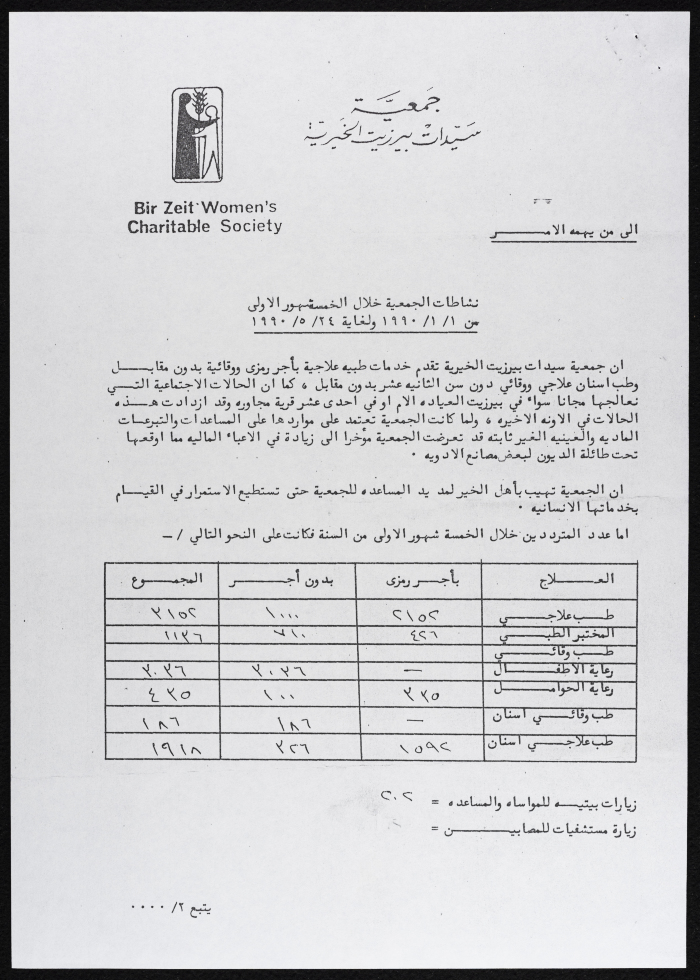 جمعية
سيدات بيرزيت الخيرية
Bir Zeit Women's
Charitable Society
الى من يهمه الامـــــر
نشاطات الجمعية خلال الخمسة شهور الاولى
من ١/ ١/ ١٩٩٠ ولغاية ٢٤/ ٥/ ١٩٩٠
ان جمعية سيدات بيرزيت الخيرية تقدم خدمات طبيه علاجية بأجر رمزى ووقائية بدون مقابـــل
وطب اسنان علاجي ووقائي دون سن الثانيه عشر بدون مقابل ، كما ان الحالات الاجتماعية التـــي
نعالجها مجانا سواء في بيرزيت العياده الام او في احدى عشر قرية مجاوره وقد ازدادت هـــذه
الحالات في الاونه الاخيره ، ولما كانت الجمعية تعتمد على مواردها على المساعدات والتبرعـات
الماديه والعينيه الغير ثابته قد تعرضت الجمعية مؤخرا الى زيادة في الاعباء الماليه مما اوقعها
تحت طائلة الديون لبعض مصانع الادويه ٠
ان الجمعية تهيب بأهل الخير لمد يد المساعده للجمعية حتى تستطيع الاستمرار في القيـــام
بخدماتها الانسانيه ٠
اما عدد المترددين خلال الخمسة شهور الاولى من السنة فكانت على النحو التالي / ــ
العـــــلاج بأجـــر رمزى بدون أجـــــر المجمـــوع
طـــب علاجـــــي ٢١٥٢ ١٠٠٠ ٣١٥٢
المختبر الطبـــــي ٤٢٦ ٧١٠ ١١٣٦
طـــب وقائـــــي
رعاية الاطفـــــال — ٣٠٣٦ ٣٠٣٦
رعاية الحوامـــــل ٣٣٥ ١٠٠ ٤٣٥
طب وقائـــــي اسنان — ١٨٦ ١٨٦
طب علاجـــــي اسنان ١٥٩٢ ٣٢٦ ١٩١٨
زيارات بيتيـــه للمواساه والمساعده = ٢٠٢
زيارة مستشفيات للمصابيـــــن =
يتبع ٢/ ٠٠٠٠